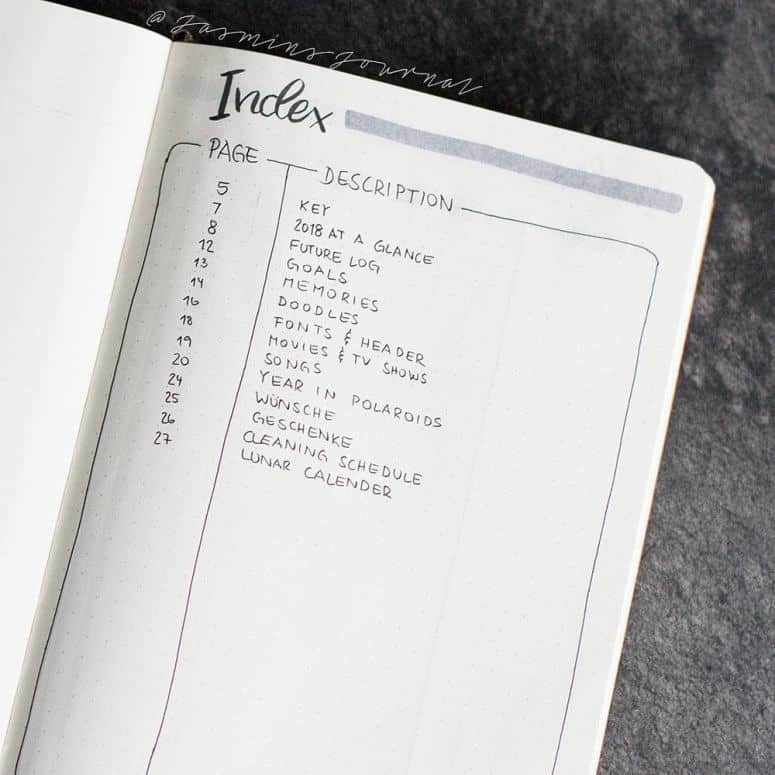 @jasminsjournal
Index
PAGE DESCRIPTION
5 KEY
7 2018 AT A GLANCE
8 FUTURE LOG
12 GOALS
13 MEMORIES
14 DOODLES
16 FONTS & HEADER
18 MOVIES & TV SHOWS
19 SONGS
20 YEAR IN POLAROIDS
24 WÜNSCHE
25 GESCHENKE
26 CLEANING SCHEDULE
27 LUNAR CALENDER